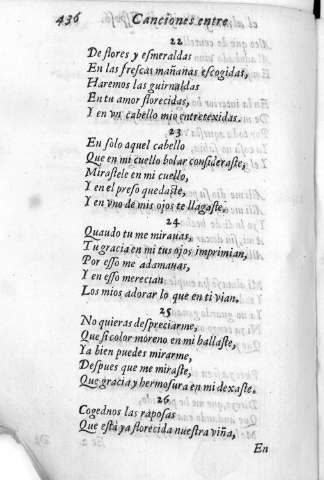 436 Canciones entre
22
De flores y esmeraldas
En las frescas mañanas escogidas,
Haremos las guirnaldas
En tu amor florecidas,
Y en vn cabello mio entretexidas.
23
En solo aquel cabello
Que en mi cuello bolar consideraste,
Mirastele en mi cuello,
Y en el preso quedaste,
Y en vno de mis ojos te llagaste.
24
Quaudo tu me mirauas,
Tu gracia en mi tus ojos imprimian,
Por esso me adamauas,
Y en esso merecian
Los mios adorar lo que en ti vian.
25
No quieras despreciarme,
Que si color moreno en mi hallaste,
Ya bien puedes mirarme,
Despues que me miraste,
Que gracia y hermosura en mi dexaste.
26
Cogednos las raposas
Que está ya florecida nuestra viña,
En